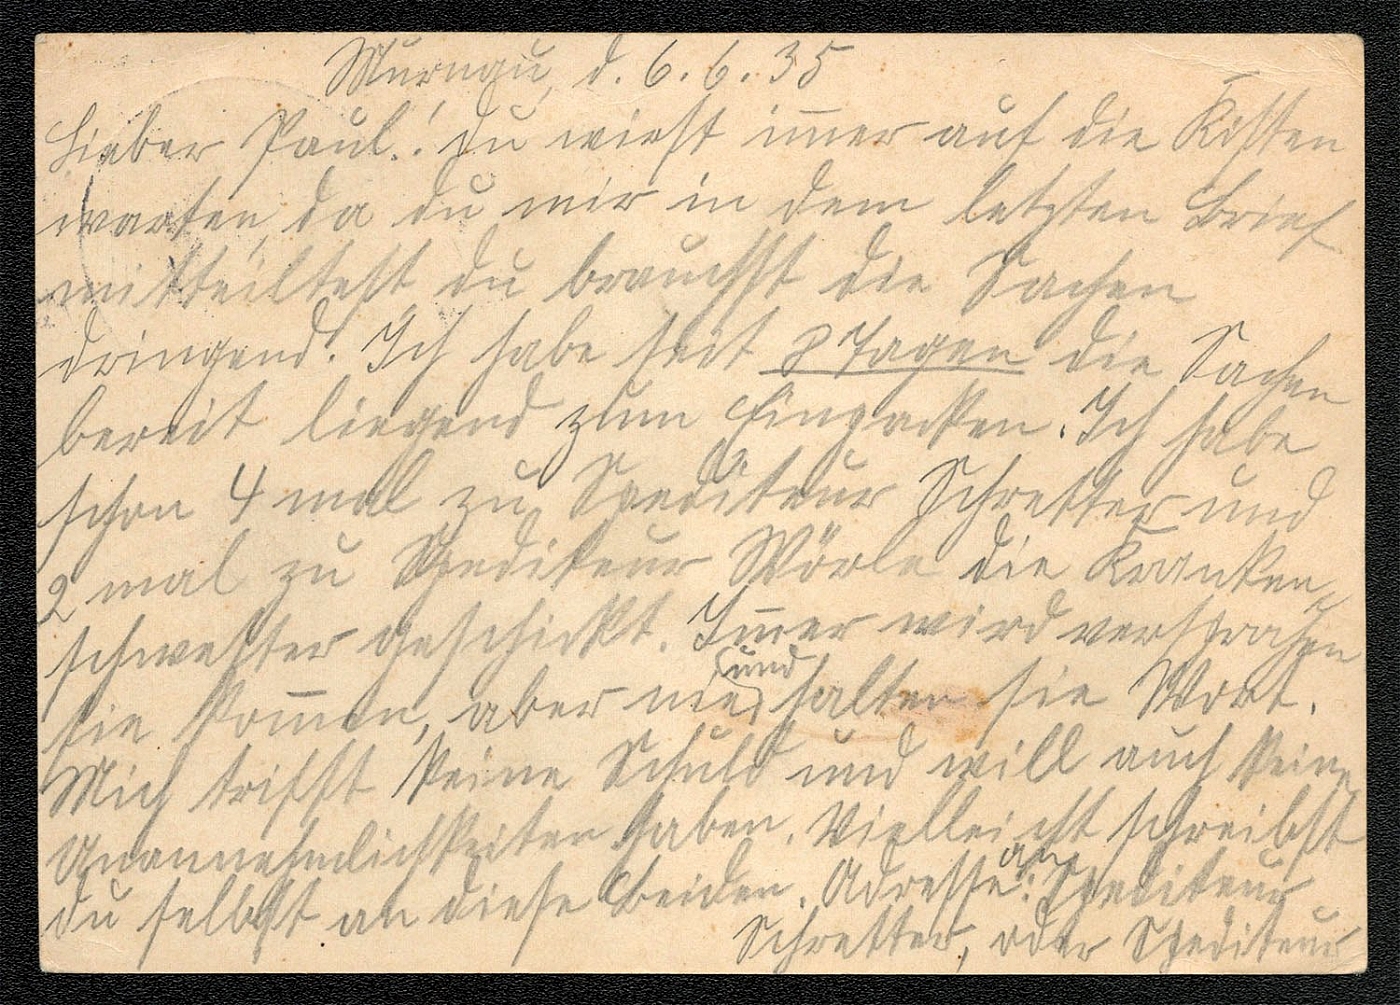 Murnau, d. 6. 6. 35
Lieber Paul! Du wirst im̄er auf die Kisten
warten, da du mir in dem letzten Brief
mitteiltest du brauchst die Sachen
dringend. Ich habe seit 8 Tagen die Sachen
bereit liegend zum Einpacken. Ich habe
schon 4 mal zu Spediteur Schretter und
2 mal zu Spediteur Wörle die Kranken„
schwester geschickt. Im̄er wird versprochen
sie kom̄en, aber nie
und
halten sie Wort.
Mich trifft keine Schuld und will auch keine
Unannehmlichkeiten haben. Vielleicht schreibst
du selbst an diese beiden. Adresse:
an
Spediteur
Schretter, oder Spediteur